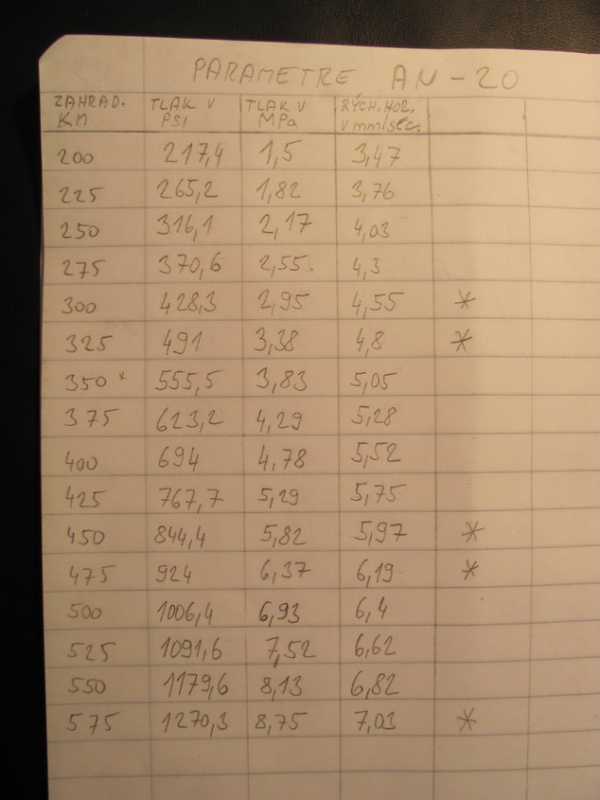 PARAMETRE AN-20
ZAHRAD. KN TLAK V PSI TLAK V MPa RÝCH. HOR. V mm/sec.
200 217,4 1,5 3,47
225 265,2 1,82 3,76
250 316,1 2,17 4,03
275 370,6 2,55. 4,3
300 428,3 2,95 4,55 *
325 491 3,38 4,8 *
350 * 555,5 3,83 5,05
375 623,2 4,29 5,28
400 694 4,78 5,52
425 767,7 5,29 5,75
450 844,4 5,82 5,97 *
475 924 6,37 6,19 *
500 1006,4 6,93 6,4
525 1091,6 7,52 6,62
550 1179,6 8,13 6,82
575 1270,3 8,75 7,03 *